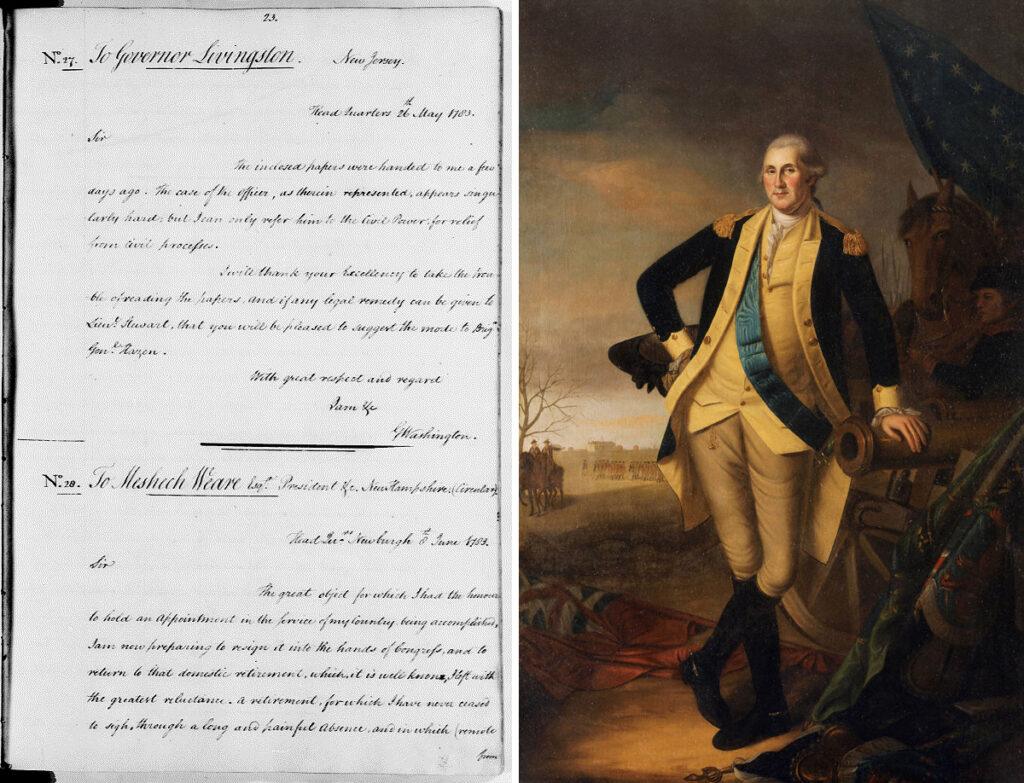 23.
No. 27. To Governor Livingston. New Jersey.
Head Quarters 26th May 1783.
Sir
The inclosed papers were handed to me a few
days ago. The case of the officer, as therein represented, appears singu
larly hard; but I can only refer him to the Civil Power, for relief
from civil processes.
I will thank your Excellency to take the trou-
ble of reading the papers, and if any legal remedy can be given to
Lieut. Stewart, that you will be pleased to suggest the mode to Brigr
Genl. Hazen.
With great respect and regard
I am &c
GWashington.
No. 28. To Meshech Weare Esqr. President &c. New Hampshire (Circular)
Head Qrs. Newburgh 8th June 1783.
Sir
The great object for which I had the honour
to hold an Appointment in the service of my Country being accomplished,
I am now preparing to resign it into the hands of Congress, and to
return to that domestic retirement, which, it is well known, I left with
the greatest reluctance. a retirement, for which I have never ceased
to sigh, through a long and painful absence, and in which (remote
from